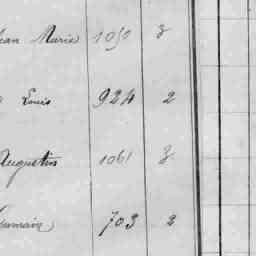 Jean Marie 1050 3
Louis 924 2
Augustin 1061 3
Germain 703 2